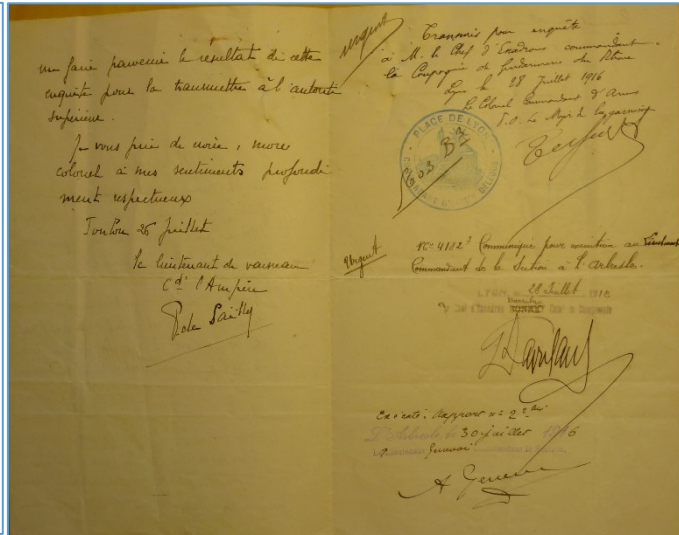 me faire parvenir le résultat de cette
enquête pour la transmettre à l'autorité
supérieure.
Je vous prie de croire, mon
colonel à mes sentiments profondé
ment respectueux
Toulon 26 juillet
le lieutenant de vaisseau
Cdt l'Ampère
de Sailly
urgent
Transmis pour enquête
à M. le Chef d'Escadrons commandant
la Compagnie de Gendarmerie du Rhône
Lyon le 28 Juillet 1916
Le Colonel Commandant d'Armes
P.O. Le Major de la garnison
PLACE DE LYON
Urgent
No 4182 Communiqué pour exécution au
Commandant de la Section à l'Arbresle.
LYON, 28 Juillet 1916
Exécuté. Rapport no 2
L'Arbresle, le 30 juillet 1916